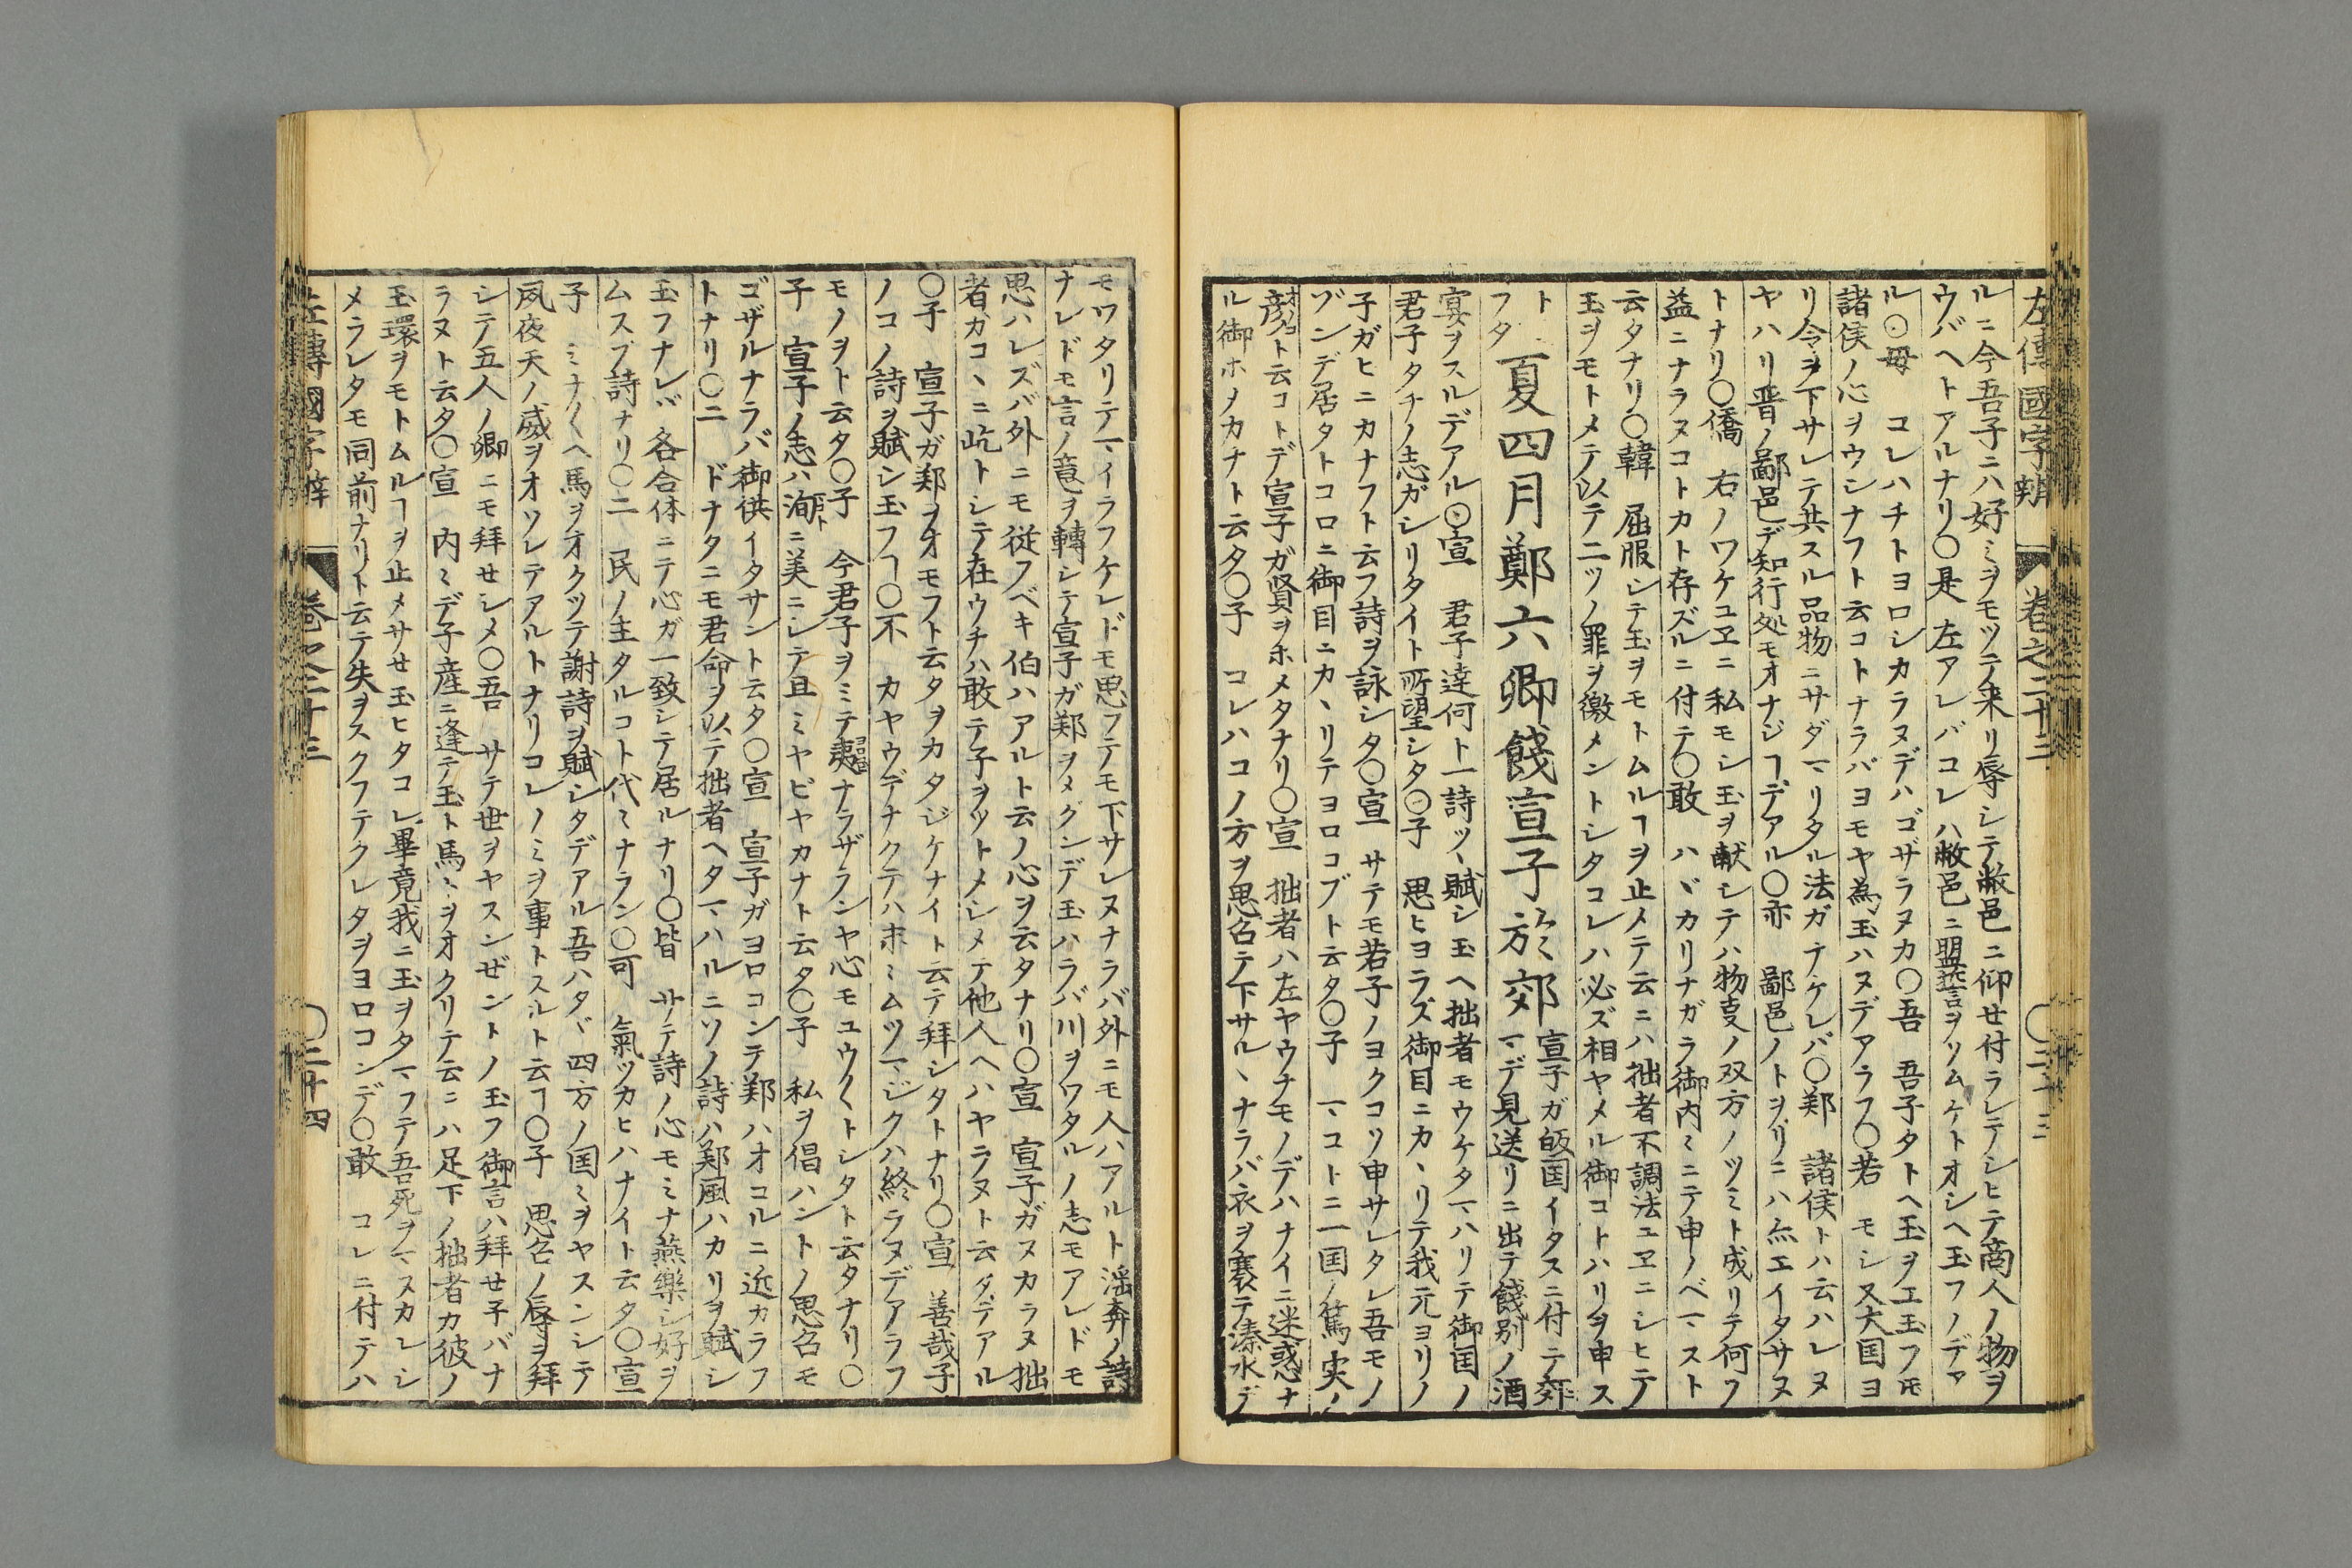 左傳國字辨 卷之二十三 〇二十三
ルニ今吾子ニハ好ミヲモツテ来リ辱シテ敝邑ニ仰せ付ラレテシヒテ商人ノ物ヲ
ウバヘトアルナリ〇是 左アレバコレハ敝邑ニ盟誓ヲソムケトオシヘ玉フノデア
ル〇毋 コレハチトヨロシカラヌデハゴザラヌカ〇吾 吾子タトヘ玉ヲエ玉フ𪜈
諸侯ノ心ヲウシナフト云コトナラバヨモヤ為玉ハヌデアラフ〇若 モシ又大国ヨ
リ令ヲ下サレテ共スル品物ニサダマリタル法ガナケレバ〇郑 諸侯トハ云ハレヌ
ヤハリ晋ノ鄙邑デ知行処モオナジヿデアル〇亦 鄙邑ノトヲリニハ点エイタサヌ
トナリ〇僑 右ノワケユヱニ私モシ玉ヲ献シテハ物叓ノ双方ノツミト成リテ何フ
益ニナラヌコトカト存ズルニ付テ〇敢 ハヾカリナガラ御内ミニテ申ノベマスト
云タナリ〇韓 屈服シテ玉ヲモトムルヿヲ止メテ云ニハ拙者不調法ユヱニシヒテ
玉ヲモトメテ以テ二ツノ罪ヲ徼メントシタコレハ必ズ相ヤメル御コトハリヲ申ス
ト
フタ
夏四月鄭六卿餞宣子於郊
宣子ガ皈国イタスニ付テ郊
マデ見送リニ出テ餞別ノ酒
宴ヲスルデアル〇宣 君子達何ト一詩ツヽ賦シ玉ヘ拙者モウケタマハリテ御国ノ
君子タチノ志ガシリタイト所望シタ〇子 思ヒヨラズ御目ニカヽリテ我元ヨリノ
子ガヒニカナフト云フ詩ヲ詠シタ〇宣 サテモ若子ノヨクコソ申サレタレ吾モノ
ゾンデ居タトコロニ御目ニカヽリテヨロコブト云タ〇子 マコトニ一国ノ篤実ノ
彦オノコト云コトデ宣子ガ賢ヲホメタナリ〇宣 拙者ハ左ヤウナモノデハナイニ迷惑ナ
ル御ホメカナト云タ〇子 コレハコノ方ヲ思召テ下サルヽナラバ衣ヲ褰テ溱水デ
モワタリテマイラフケレドモ思フテモ下サレヌナラバ外ニモ人ハアルト淫奔ノ詩
ナレドモ言ノ意ヲ轉シテ宣子ガ郑ヲメグンデ玉ハラバ川ヲワタルノ志モアレドモ
思ハレズバ外ニモ従フベキ伯ハアルト云ノ心ヲ云タナリ〇宣 宣子ガヌカラヌ拙
者ガコヽニ屹トシテ在ウチハ敢テ子ヲツトメシメテ他人ヘハヤラヌト云タデアル
〇子 宣子ガ郑ヲオモフト云タヲカタジケナイト云テ拜シタトナリ〇宣 善哉子
ノコノ詩ヲ賦シ玉フヿ〇不 カヤウデナクテハホミムツマジクハ終ラヌデアラフ
モノヲト云タ〇子 今君子ヲミテ夷ナラザランヤ心モユウ〱トシタト云タナリ〇
子 宣子ノ志ハ洵ニ美ニシテ且ミヤビヤカナト云タ〇子 私ヲ倡ハントノ思召モ
ゴザルナラバ御供イタサント云タ〇宣 宣子ガヨロコンテ郑ハオコルニ近カラフ
トナリ〇二 ドナタニモ君命ヲ以テ拙者ヘタマハルニソノ詩ハ郑風ハカリヲ賦シ
玉フナレバ各合体ニテ心ガ一致シテ居ルナリ〇皆 サテ詩ノ心モミナ燕樂シ好ヲ
ムスブ詩ナリ〇二 民ノ主タルコト代ミナラン〇可 氣ツカヒハナイト云タ〇宣
子 ミナ〱ヘ馬ヲオクツテ謝詩ヲ賦シタデアル吾ハタヾ四方ノ国ミヲヤスンシテ
夙夜天ノ威ヲオソレテアルトナリコレノミヲ事トスルト云ヿ〇子 思召ノ辱ヲ拜
シテ五人ノ卿ニモ拜せシメ〇吾 サテ世ヲヤスンぜントノ玉フ御言ハ拜せ子バナ
ラヌト云タ〇宣 内ミデ子産ニ逢テ玉ト馬ミヲオクリテ云ニハ足下ノ拙者カ彼ノ
玉環ヲモトムルヿヲ止メサせ玉ヒタコレ畢竟我ニ玉ヲタマフテ吾死ヲマヌカレシ
メラレタモ同前ナリト云テ失ヲスクフテクレタヲヨロコンデ〇敢 コレニ付テハ
左傳國字辨 卷之二十三 〇二十四